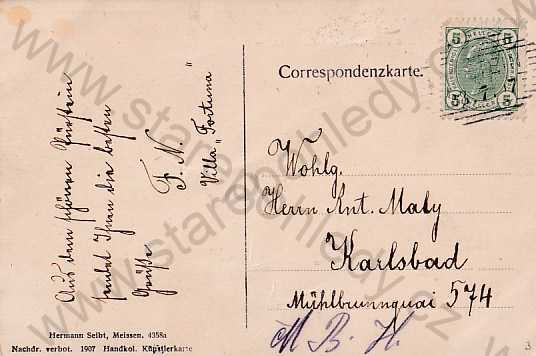 Aus dem schönen Gürstein
sendet Ihnen die besten
Grüße
F. N.
Villa „Fortuna"
Correspondenzkarte.
5 5
5 5
Wohlg.
Herrn Ant. Maly
Karlsbad
Mühlbrunnquai 574
M. B. H.
Hermann Seibt, Meissen, 4358a
Nachdr. verbot. 1907 Handkol. Künstlerkarte
3
www.stareeohledy.cz